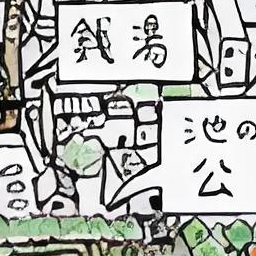 銭湯
池の
公